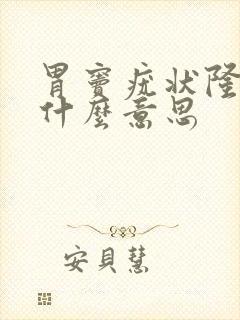 胃竇疣狀隆
什麼意思
安貝慧